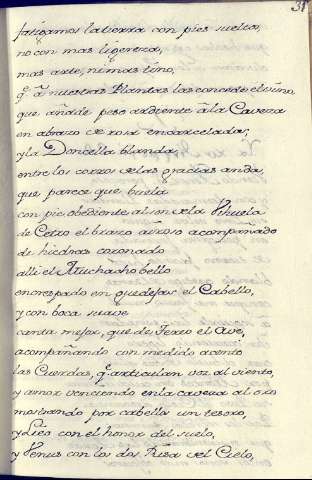 31
fatigamos la tierra con pies sueltos,
no con mas ligereza,
mas arte, ni mas tino,
q.e à nuestras Plantas las concede el vino,
que añade peso ardiente à la Caveza
en abrazo de rosa encarceladas;
y la Doncella blanda,
entre los corros de las gracias anda,
que parece que buela
con pie obediente al son de la Vihuela
de Cetro el brazo airoso acompañado
de hiedras coronado
alli el Muchacho bello
encrespado en guedejas el Cabello,
y con boca suave
canta mejor, que de Tereo el Ave,
acompañando con medido acento
las Cuerdas, q.e articulan voz al viento,
y amor venciendo en la caveza al oro
mostrando por cabello un tesoro,
y Lieo con el honor del suelo,
y Venus con los dos Risa del Cielo,